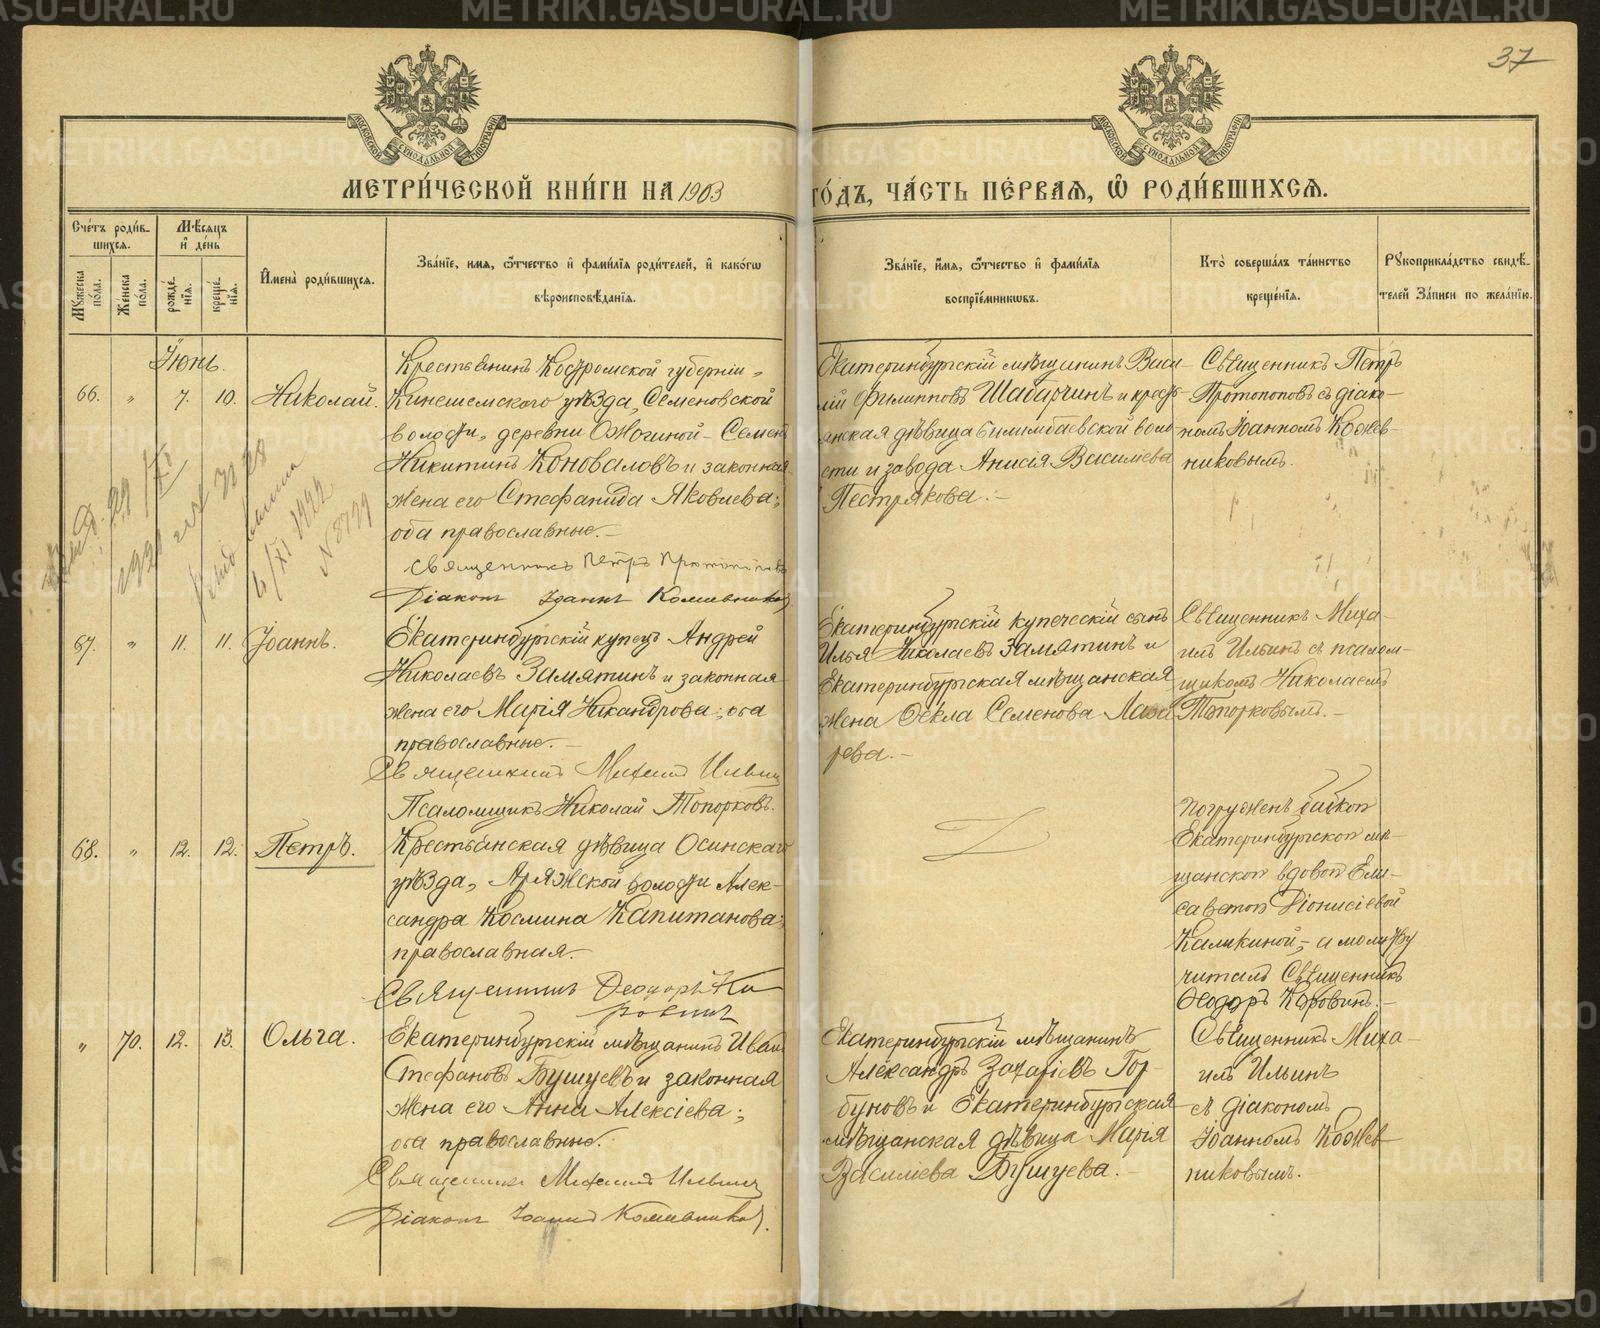 37
МЕТРИ́ЧЕСКОЙ КНИ́ГИ НА 1903 ГО́ДЪ, ЧА́СТЬ ПЕ́РВАЯ, Ѿ РОДИ́ВШИХСЯ.
Сче́тъ роди́в-
шихся.
Мꙋжеска по́ла.
Женска по́ла.
Мѣ́сяцъ
и҆ де́нь
рожде́-
нїя.
креще́-
нїя.
И҆мена̀ роди́вшихся.
Зва́нїе, имя, ѻ҆́тчество и҆ фами́лїѧ роди́телей, и҆ како́гѡ
вѣроисповѣ́данїѧ.
Зва́нїе, и҆́мя, ѻ҆́тчество и҆ фами́лїѧ
воспрїе́мникѡвъ.
Кто̀ соверша́лъ та́инство
креще́нїѧ.
Рꙋкоприкла́дство свидѣ́-
телей За́писи по жела́нїю.
Іюнь.
66. „ 7. 10. Николай.
Крестьянинъ Костромской губернiи,
Кинешемского уѣзда, Семеновской
волости, деревни Ожогиной – Семенъ
Никитинъ Коноваловъ и законная
жена его Стефанида Яковлева;
оба православные. –
Священникъ Петръ Протопоповъ
Дiаконъ Іоаннъ Кожевниковъ
Екатеринбургскiй мѣщанинъ Васи-
лiй Филипповъ Шабарчинъ и кресть-
янская дѣвица Билимбаевской воло
сти и завода Анисiя Васильева
Пестрякова. –
Священникъ Петръ
Протопоповъ съ дiако-
номъ Іоанномъ Кожев-
никовымъ.
67. „ 11. 11. Іоаннъ.
Екатеринбургскiй купецъ Андрей
Николаевъ Замятинъ и законная
жена его Марiя Никандрова; оба
православные. –
Священникъ Михаилъ Ильинъ
Псаломщикъ Николай Топорковъ.
Екатеринбургскiй купеческiй сынъ
Илья Николаевъ Замятинъ и
Екатеринбургская мѣщанская
жена Ѳекла Семенова Лаза
рева. –
Священникъ Миха-
илъ Ильинъ съ псалом-
щикомъ Николаемъ
Топорковымъ. –
68. „ 12. 12. Петръ.
Крестьянская дѣвица Осинскаго
уѣзда, Аряжской волости Алек-
сандра Космина Капитанова;
православная. –
Священникъ Ѳеодоръ Ко
ровинъ
Погруженъ бабкою
Екатеринбургскою мѣ-
щанскою вдовою Ели-
саветою Дiонисiевой
Каликиной, – а молитву
читалъ Священникъ
Ѳеодоръ Коровинъ. –
„ 70. 12. 13. Ольга.
Екатеринбургскiй мѣщанинъ Иванъ
Стефановъ Бушуевъ и законная
жена его Анна Алексiева;
оба православные.
Священникъ Михаилъ Ильинъ
Дiаконъ Іоаннъ Кожевниковъ.
Екатеринбургскiй мѣщанинъ
Александръ Захарiевъ Гор-
буновъ и Екатеринбургская
мѣщанская дѣвица Марiя
Васильева Бушуева. –
Священникъ Миха-
илъ Ильинъ
съ дiакономъ
Іоанномъ Кожев-
никовымъ.
METRIKI.GASO-URAL.RU